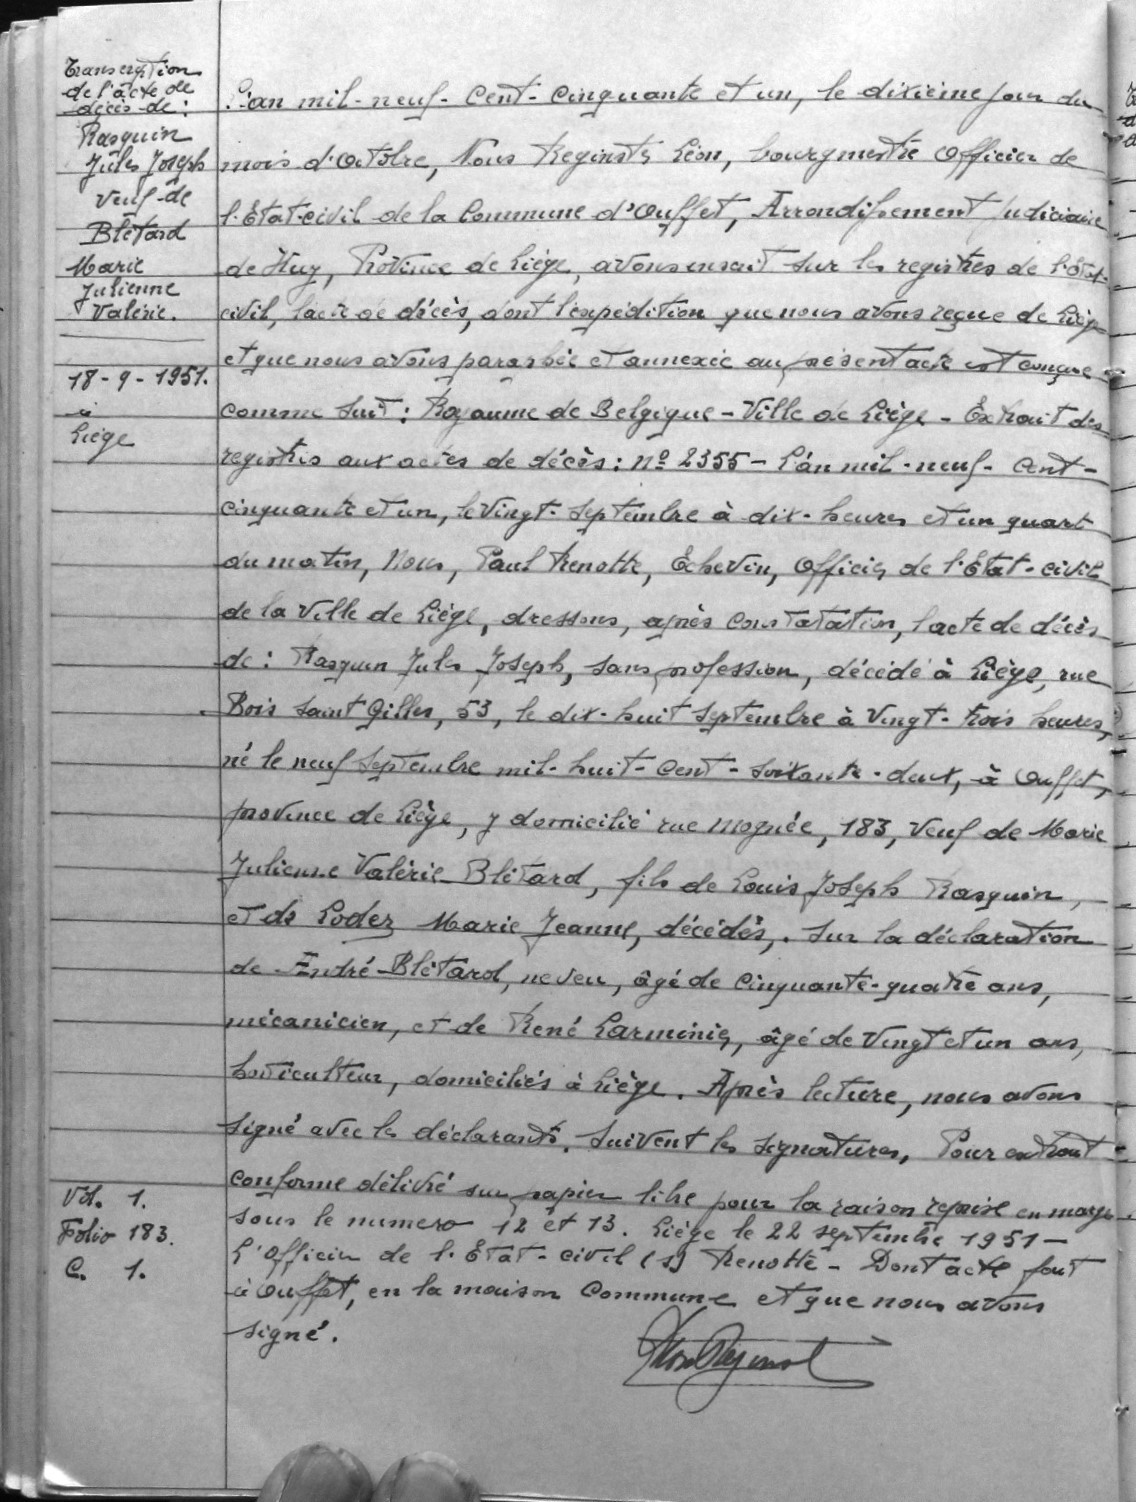 Transcription
de l'acte de
décès de :
Rasquin
Jules Joseph
veuf de
Blétard
Marie
Julienne
Valérie.
18-9-1951.
à
Liège
L'an mil-neuf-cent-cinquante et un, le dixième jour du
mois d'Octobre, Nous Reginster Léon, bourgmestre Officier de
l'Etat-civil de la Commune d'Ouffet, Arrondissement Judiciaire
de Huy, Province de Liège, avons inscrit sur les registres de l'Etat-
civil, l'acte de décès, dont l'expédition que nous avons reçue de Liège
et que nous avons paraphée et annexée au présent acte est conçue
comme suit : Royaume de Belgique - Ville de Liège - Extrait des
registres aux actes de décès : Nº 2355 - L'an mil-neuf-cent-
cinquante et un, le vingt-septembre à dix-heures et un quart
du matin, Nous, Paul Renotte, Echevin, Officier de l'Etat-civil
de la Ville de Liège, dressons, après constatation, l'acte de décès
de : Rasquin Jules Joseph, sans profession, décédé à Liège, rue
Bois Saint Gilles, 53, le dix-huit septembre à vingt-trois heures,
né le neuf septembre mil-huit-cent-soixante-deux, à Ouffet,
province de Liège, y domicilié rue Mognée, 183, veuf de Marie
Julienne Valérie Blétard, fils de Louis Joseph Rasquin,
et de Loder Marie Jeanne, décédés,. Sur la déclaration
de André Blétard, neveu, âgé de cinquante-quatre ans,
mécanicien, et de René Larminier, âgé de vingt et un ans,
horticulteur, domiciliés à Liège. Après lecture, nous avons
signé avec les déclarants. Suivent les signatures, Pour extrait
conforme délivré sur papier libre pour la raison reprise en marge
sous le numero 12 et 13. Liège le 22 septembre 1951 -
L'officier de l'Etat-civil (s) Renotte - Dont acte fait
à Ouffet, en la maison Commune et que nous avons
signé.
Vol. 1.
Folio 183.
C. 1.